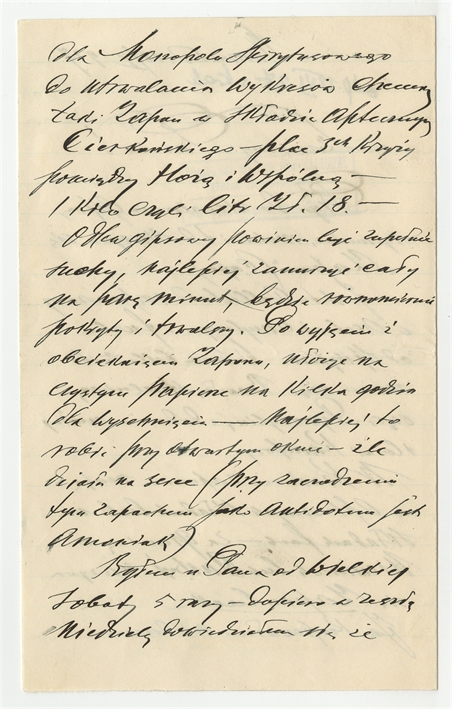 dla Monopolu Spirytusowego
do utrwalania wykresów chemicz.
taki Zapon w Składzie Aptecznym
Cierkońskiego – plac 3ch Krzyży
pomiędzy Hożą i Wspólną –
1 Kilo czyli litr Zł. 18. –
Odlew gipsowy powinien być zupełnie
suchy, najlepiej zanurzyć cały
na parę minut, będzie równomiernie
pokryty i trwalszy. Po wyjęciu i
obcieknięciu Zaponu, ułożyć na
czystym papierze na kilka godzin
dla wyschnięcia — najlepiej to
robić przy otwartym oknie – źle
działa na serce (przy zaczadzeniu
tym zapachem jako Antidotum jest
Amoniak)
Byłem u Pana od Wielkiej
Soboty 5 razy – dopiero w zeszłą
Niedzielę dowiedziałem się że